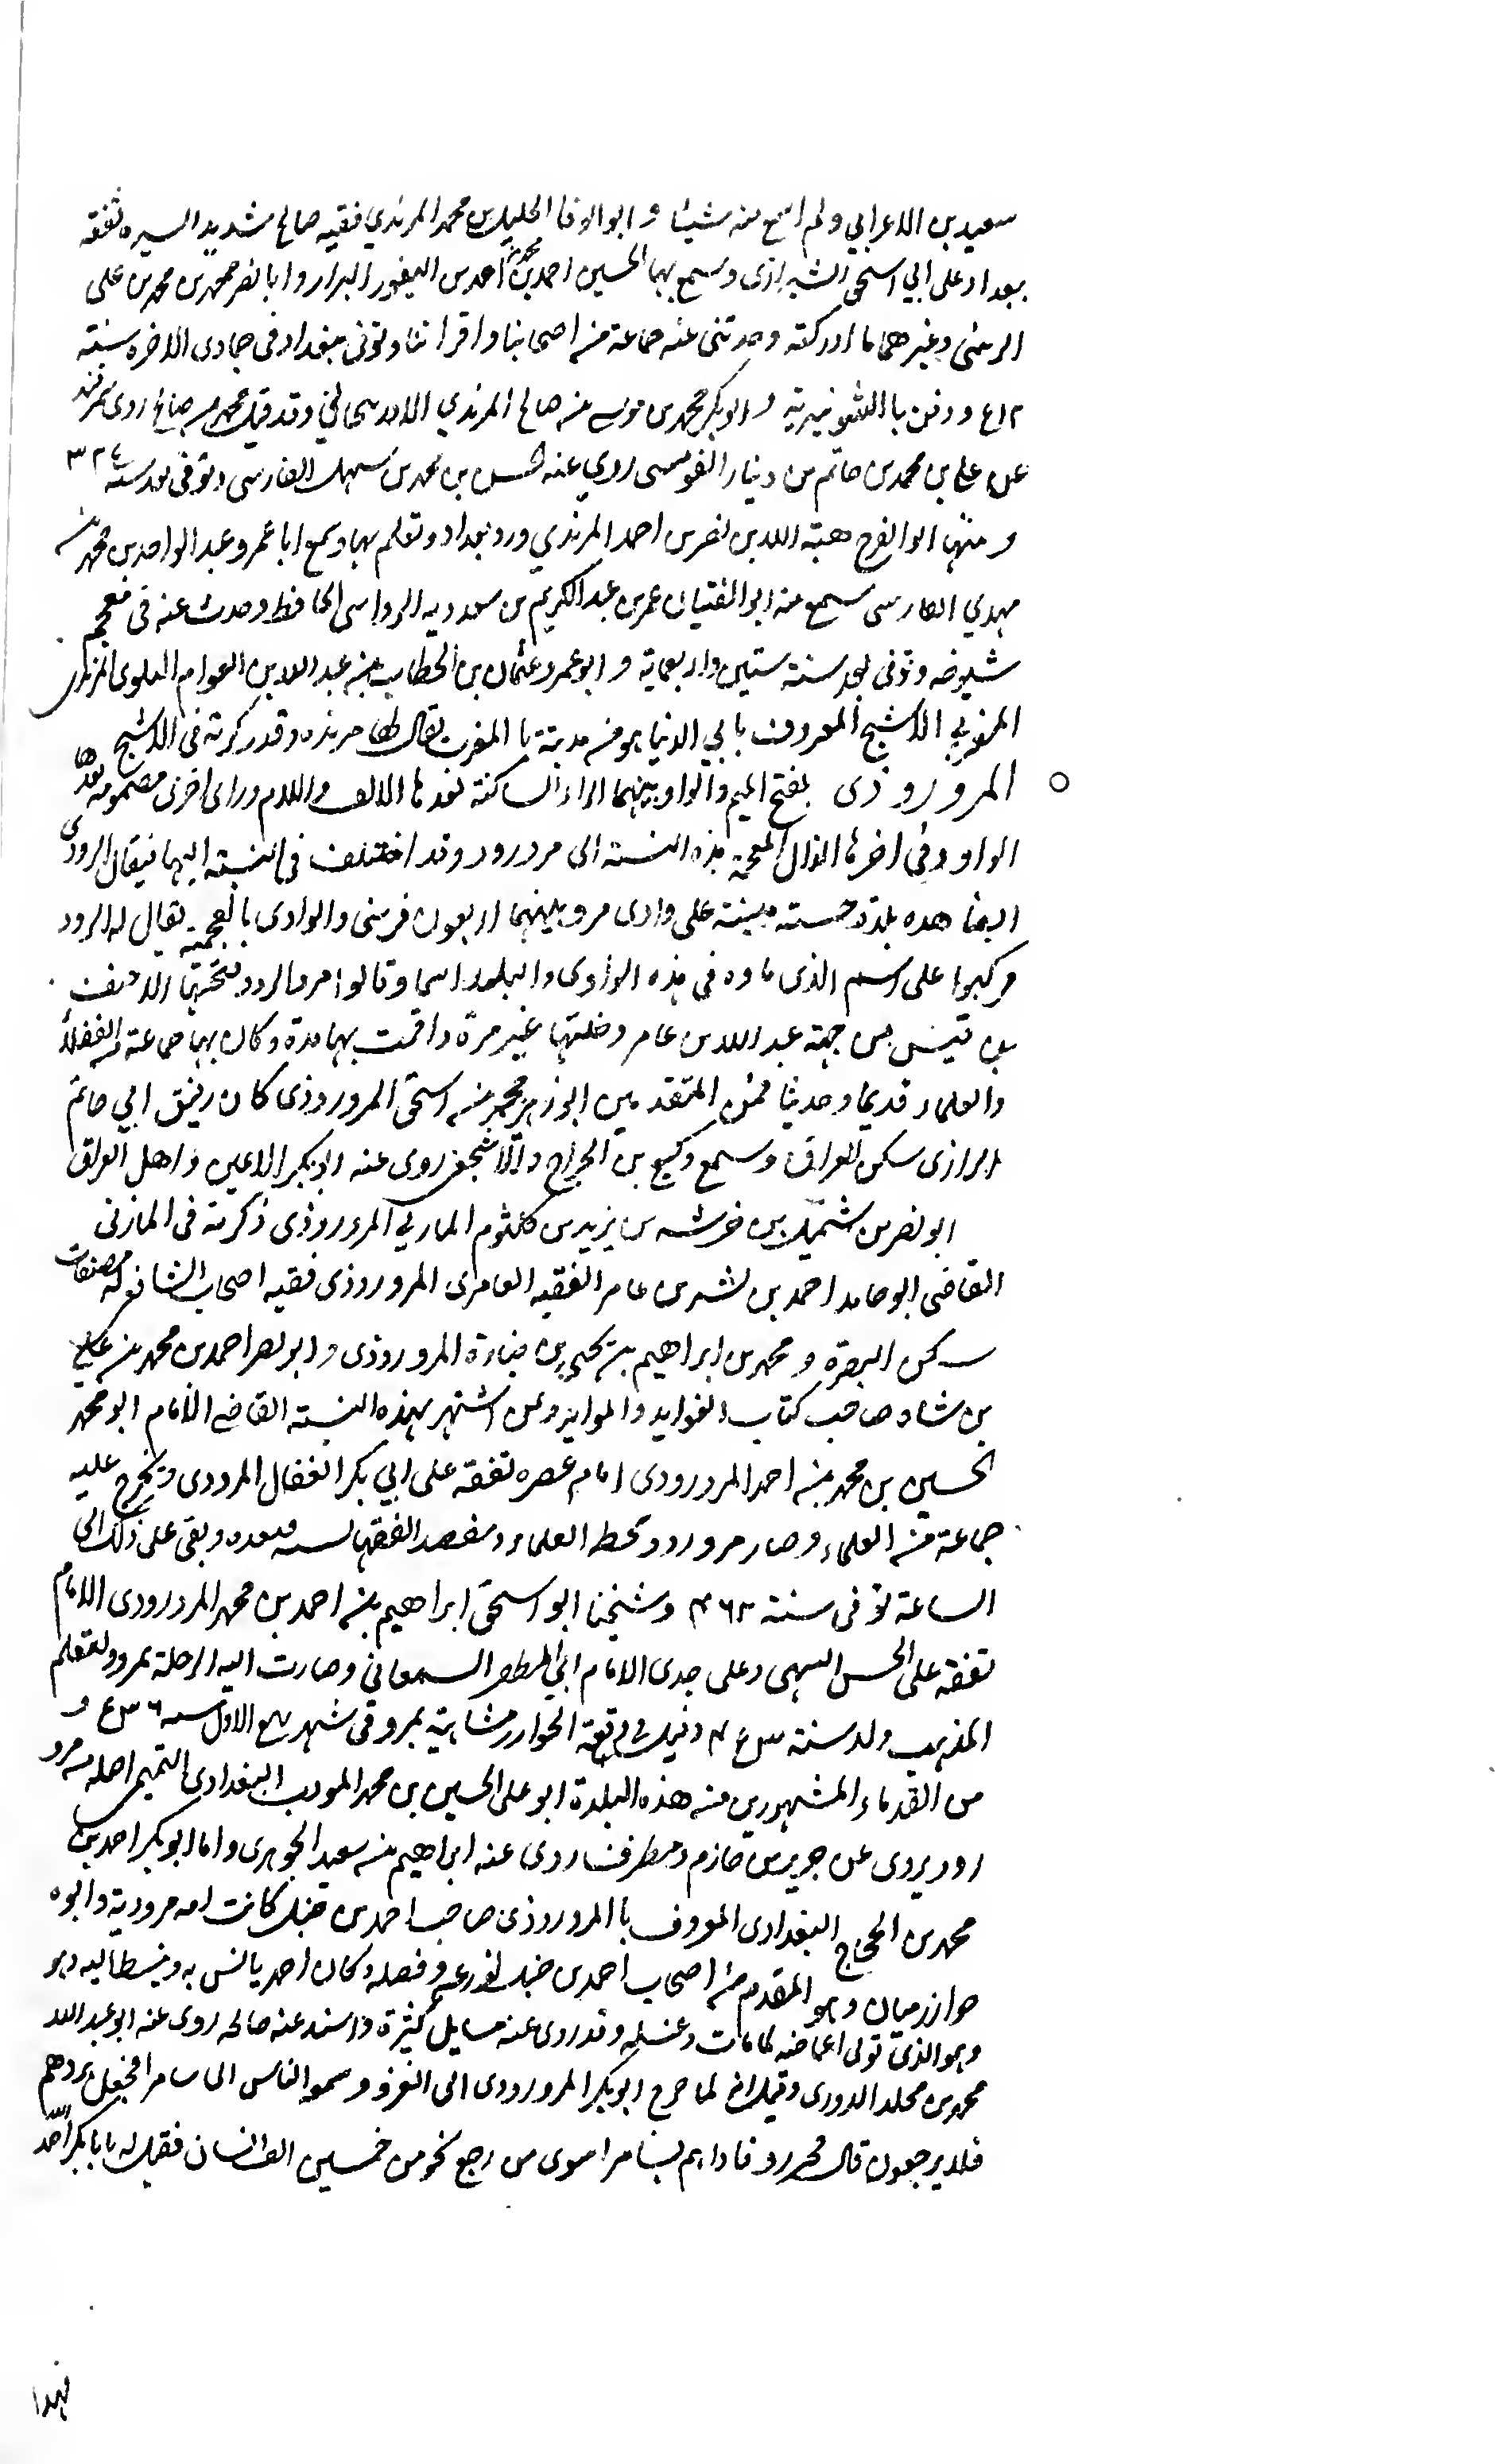 سعيد بن الاعرابي ولم اسمع منه شيئا و ابو الوفا الخليل بن محمد المرندي فقيه صالح شديد السيره تفقه
ببغداد على ابي اسحق الشيرازى وسمع بها الحسين احمد بن محمد بن احمد بن اليفور البزار و ابا نصر محمد بن محمد بن على
الزينى وغيرهما ما ادركته وحدثنى عنه جماعة من اصحابنا و اقراننا وتوفى ببغداد فى جمادى الاخره سنة
ودفن باالشونيزية و ابو بكر محمد بن موسى بن صالح المرندي وقد قيل محمد بن صالح روى بمرند
عن علي بن محمد بن حاتم بن دينار القومسى روي عنه بن محمد بن سهل الفارسى وتوفى بعد سنة ٣٢٤
و منها ابو الفرج هبة الله بن نصر بن احمد المرندي ورد بغداد وتعلم بها وسمع ابا عمرو عبد الواحد بن محمد بن
مهدي الفارسى سمع منه ابو الفتيان عمر بن عبد الكريم بن سعدويه الرواسى الحافظ وحدث عنه فى معجم
شيوخه وتوفى بعد سنة ستين واربعماية و ابو عمرو عثمان بن الخطاب بن عبد الله بن العوام البلوى المرندى
المغربي الاشج المعروف بابي الدنيا هو من مدينة باالمغرب يقال لها مرنده وقد ذكرته فى الاشج
المروروذى بفتح الميم والواو بينهما الراء الساكنة بعدها الالف واللام وراى اخرى مضمومه بعدها
الواو وفى اخرها الذال المعجمة هذه النسته الى مرورود وقد اختلف فى النسبته اليها فيقال الروذى
ايضا هده بلدة حسنه مبينة على وادى مرو بينهما اربعون فرسخ والوادى بالعجمية يقال له الرود
فركبوا على اسم الذى ماوه فى هذه الوادى والبلد اسما وقالوا مروالرود فتحتها الاحنف
بن قيس من جهة عبد الله بن عامر دخلتها غير مرة واقمت بها مدة وكان بها جماعة من الفضلا
والعلماء قديما وحديثا فمن المتقدمين ابو زهير محمد بن اسحق المروروذى كان رفيق ابي حاتم
الرازى سكن العراق وسمع وكيع بن الجراح والاشجعى روى عنه ابو بكر الاعين و اهل العراق
ابو نصر بن شميل بن خرشه بن يزيد بن كلثوم المازني المروروذى ذكرته فى المازنى
القاضى ابو حامد احمد بن بشر بن عامر الفقيه العامرى المروروذى فقيه اصحاب الشافعى له مصنفات
سكن البصرة و محمد بن ابراهيم بن يحيى بن جنادة المروروذى و ابو نصر احمد بن محمد بن علي
بن شاه صاحب كتاب الفوايد و الموايد وممن اشتهر بهذه النسبة القاضى الامام ابو محمد
الحسين بن محمد بن احمد المرورودى امام عصره تفقه على ابي بكر القفال المروزى وتخرج عليه
جماعة من العلماء وصار مرورود محط العلماء ومقصد الفقها وبعده وبقى على ذلك الى
الساعة توفى سنة ٤٦٢ وشيخنا ابو اسحق ابراهيم بن احمد بن محمد المرورودى الامام
تفقه على الحسن النيهى وعلى جدى الامام ابي المظفر السمعانى وصارت اليه الرحلة بمرو ولتعلم
المذهب ولد سنة وقيل فى وقعة الخوارزمشاهية بمرو فى شهر ربيع الاول سنة
من القدماء المشهورين من هذه البلدة ابو على الحسين بن محمد المودب البغدادى التميمى اصله من مرو
رود يروى عن جرير بن حازم ومطرف روى عنه ابراهيم بن سعيد الجوهرى و اما ابو بكر احمد بن
محمد بن الحجاج البغدادى المعروف باالمروروذى صاحب احمد بن حنبل كانت امه مروديه وابوه
خوارزميان وهو المقدم من اصحاب احمد بن حنبل لورعه وفضله وكان احمد يانس به وينبسط اليه وهو
وهو الذى تولى اغماضه لما مات وغسله وقد روى عنه مسايل كثيرة و اسند عنه صالح روى عنه ابو عبد الله
محمد بن مخلد الدورى وقيل انه لما خرج ابو بكر المرورودى الى الغزو وسمعوا الناس الى سامرا فجعل يردهم
فلا يرجعون قال فحرروا فاذا هم بسامرا سوى من رجع نحو من خمسين الف انسان فقيل له يا با بكر احمد الله
فهدا